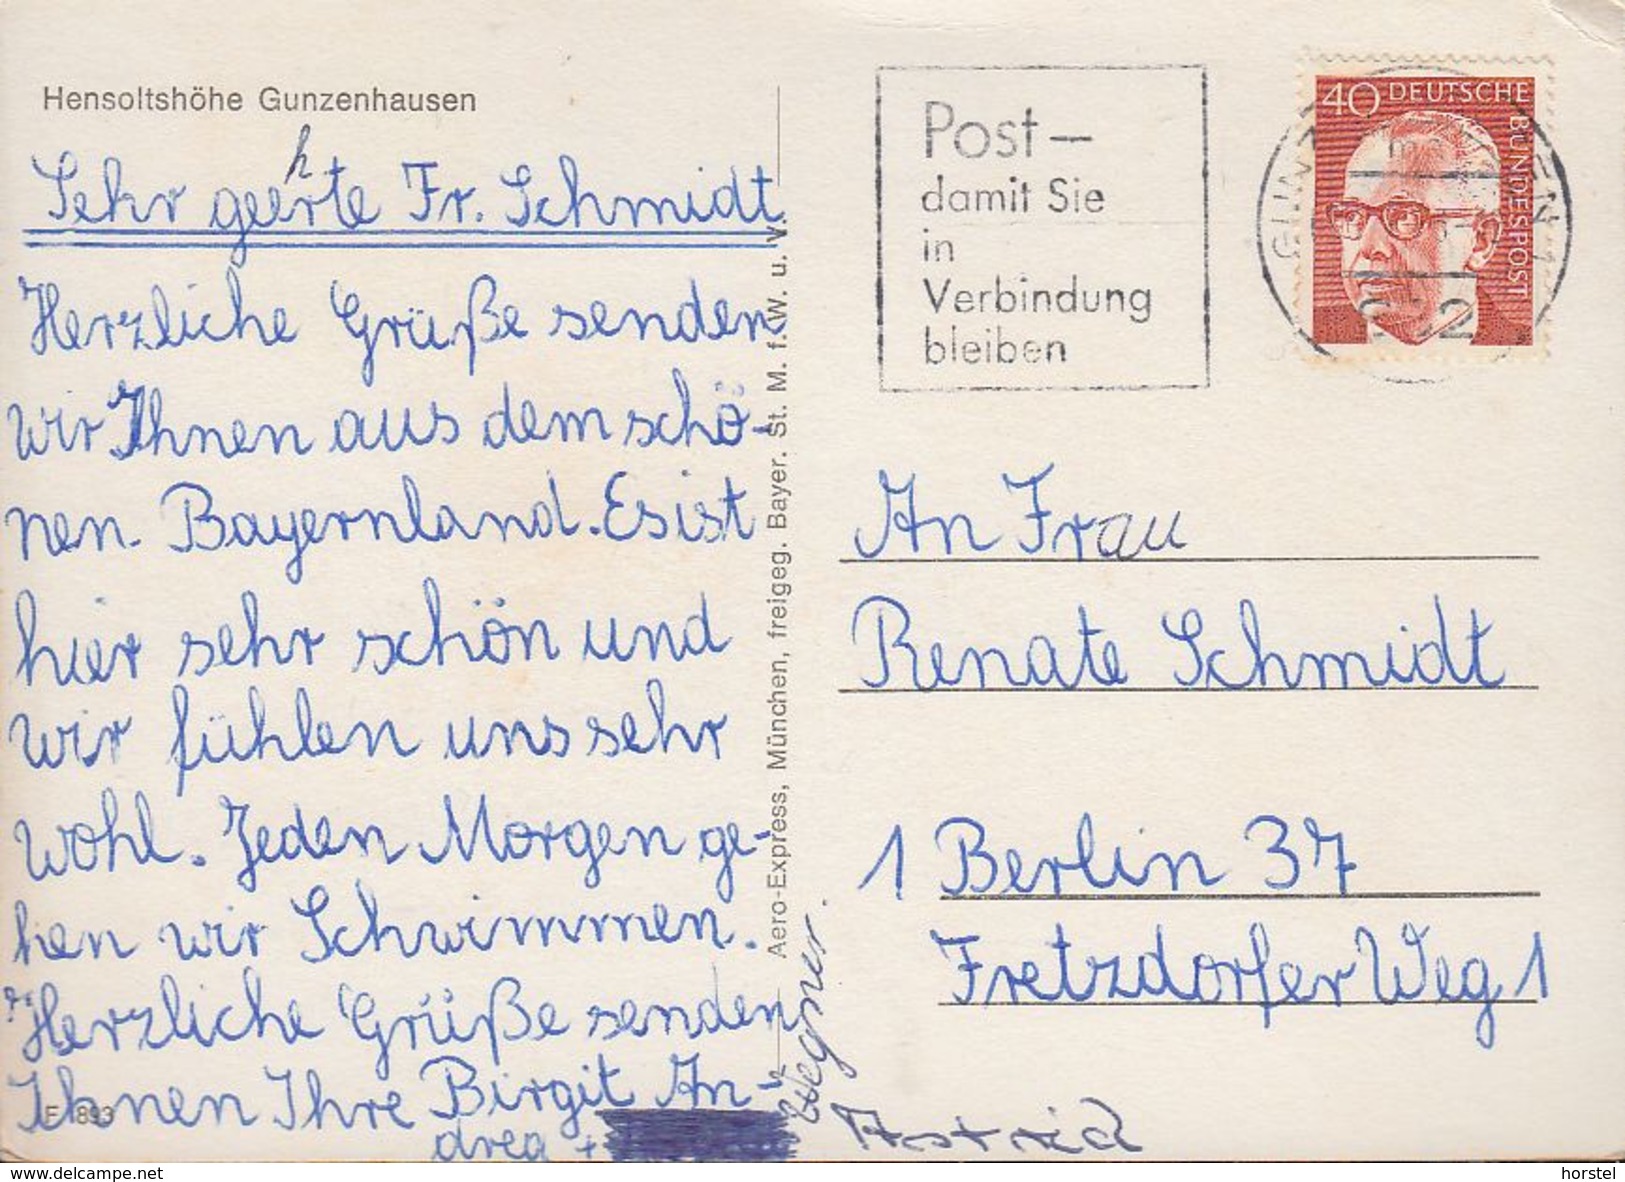 Hensoltshöhe Gunzenhausen
h
Sehr geerte Fr. Schmidt
Herzliche Grüße senden
wir Ihnen aus dem schö-
nen Bayernland. Es ist
hier sehr schön und
wir fühlen uns sehr
wohl. Jeden Morgen ge-
hen wir Schwimmen.
Herzliche Grüße senden
Ihnen Ihre Birgit An-
drea +
Wegner.
Astrid
E 893
Aero-Express, München, freigeg. Bayer. St. M. f. W. u. V.
Post –
damit Sie
in
Verbindung
bleiben
40 DEUTSCHE
BUNDESPOST
An Frau
Renate Schmidt
1 Berlin 37
Fretzdorfer Weg 1
delcampe.net
horstel